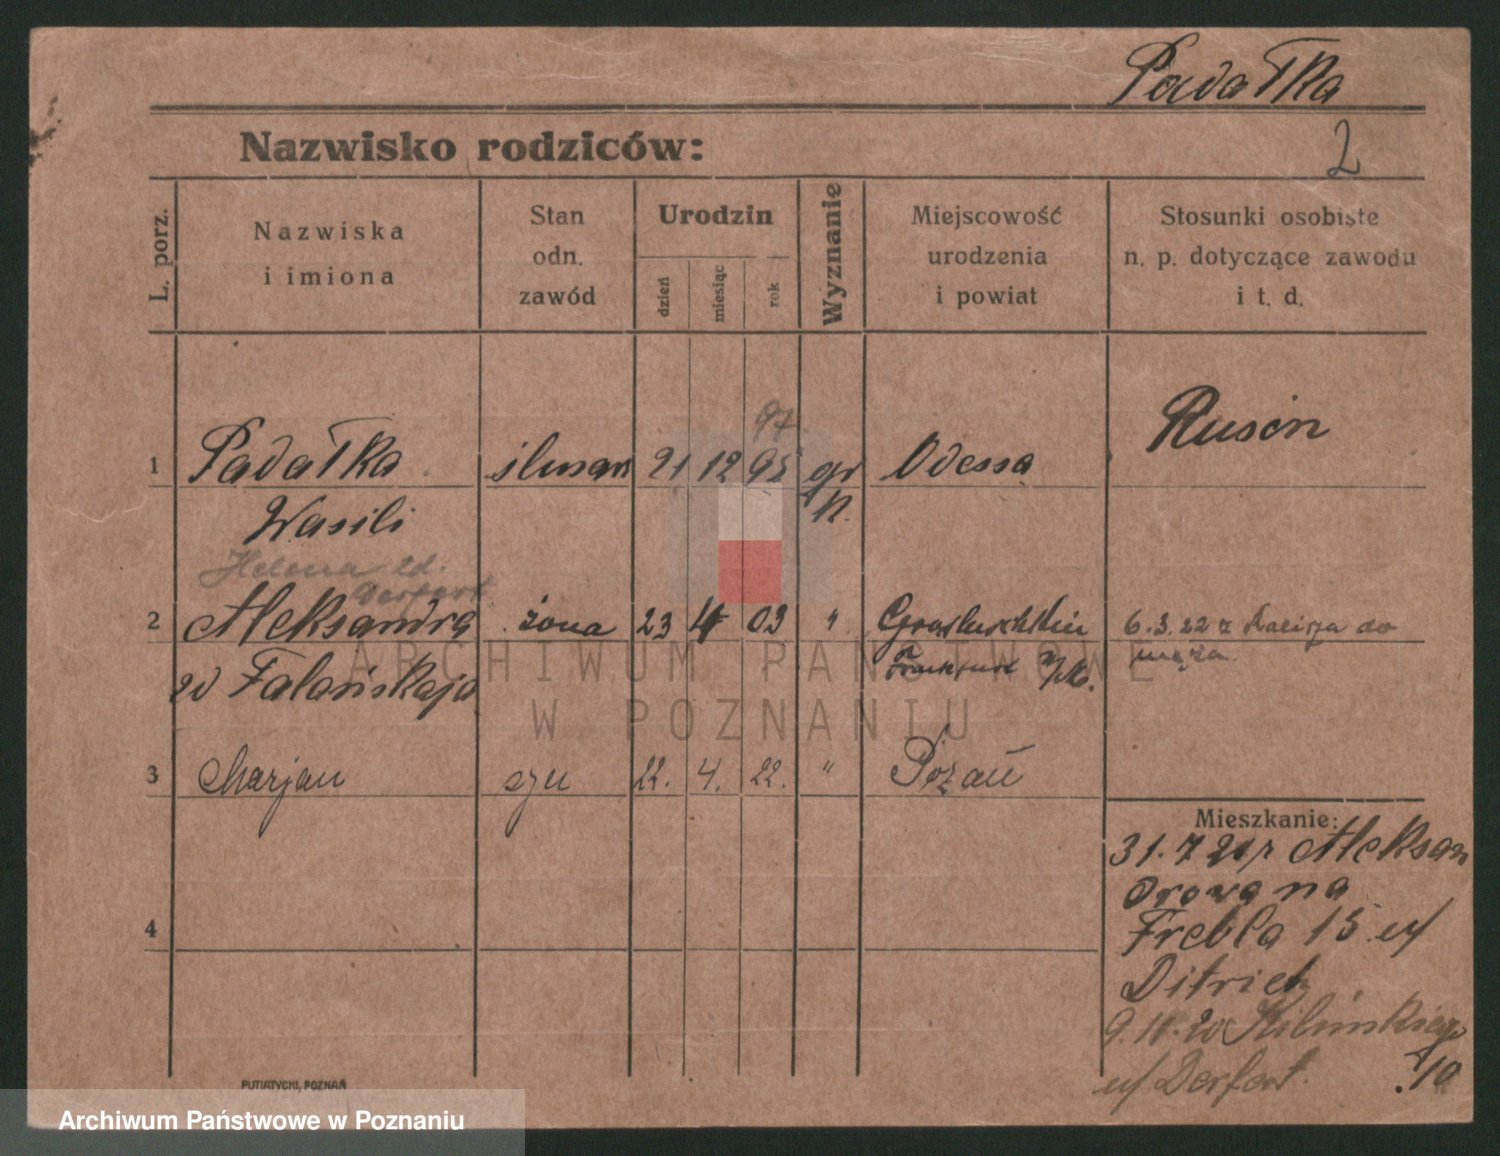 Padałka
Nazwisko rodziców:
2
L. porz.
Nazwiska
i imiona
Stan
odn.
zawód
Urodzin
dzień
miesiąc
rok
Wyznanie
Miejscowość
urodzenia
i powiat
Stosunki osobiste
n. p. dotyczące zawodu
i t. d.
97
1 Padałka ślusarz 21 12 95 gr Odessa Rusin
Wasili K.
Helena zd.
Derfert
2 Aleksandra żona 23 4 03 " 6.3.22 z Kalisza do
zd Falańskaja Frankfurt męża
3 Marjan syn 22. 4. 22. " Poznań
Mieszkanie:
31.7 21 z Aleksan
drowa na
4
Frebla 15 u/
Ditrich
9.11.20 Kilińskiego
10
u/ Derfert.
PUTIATYCKI, POZNAŃ
ARCHIWUM PAŃSTWOWE
W POZNANIU
Archiwum Państwowe w Poznaniu